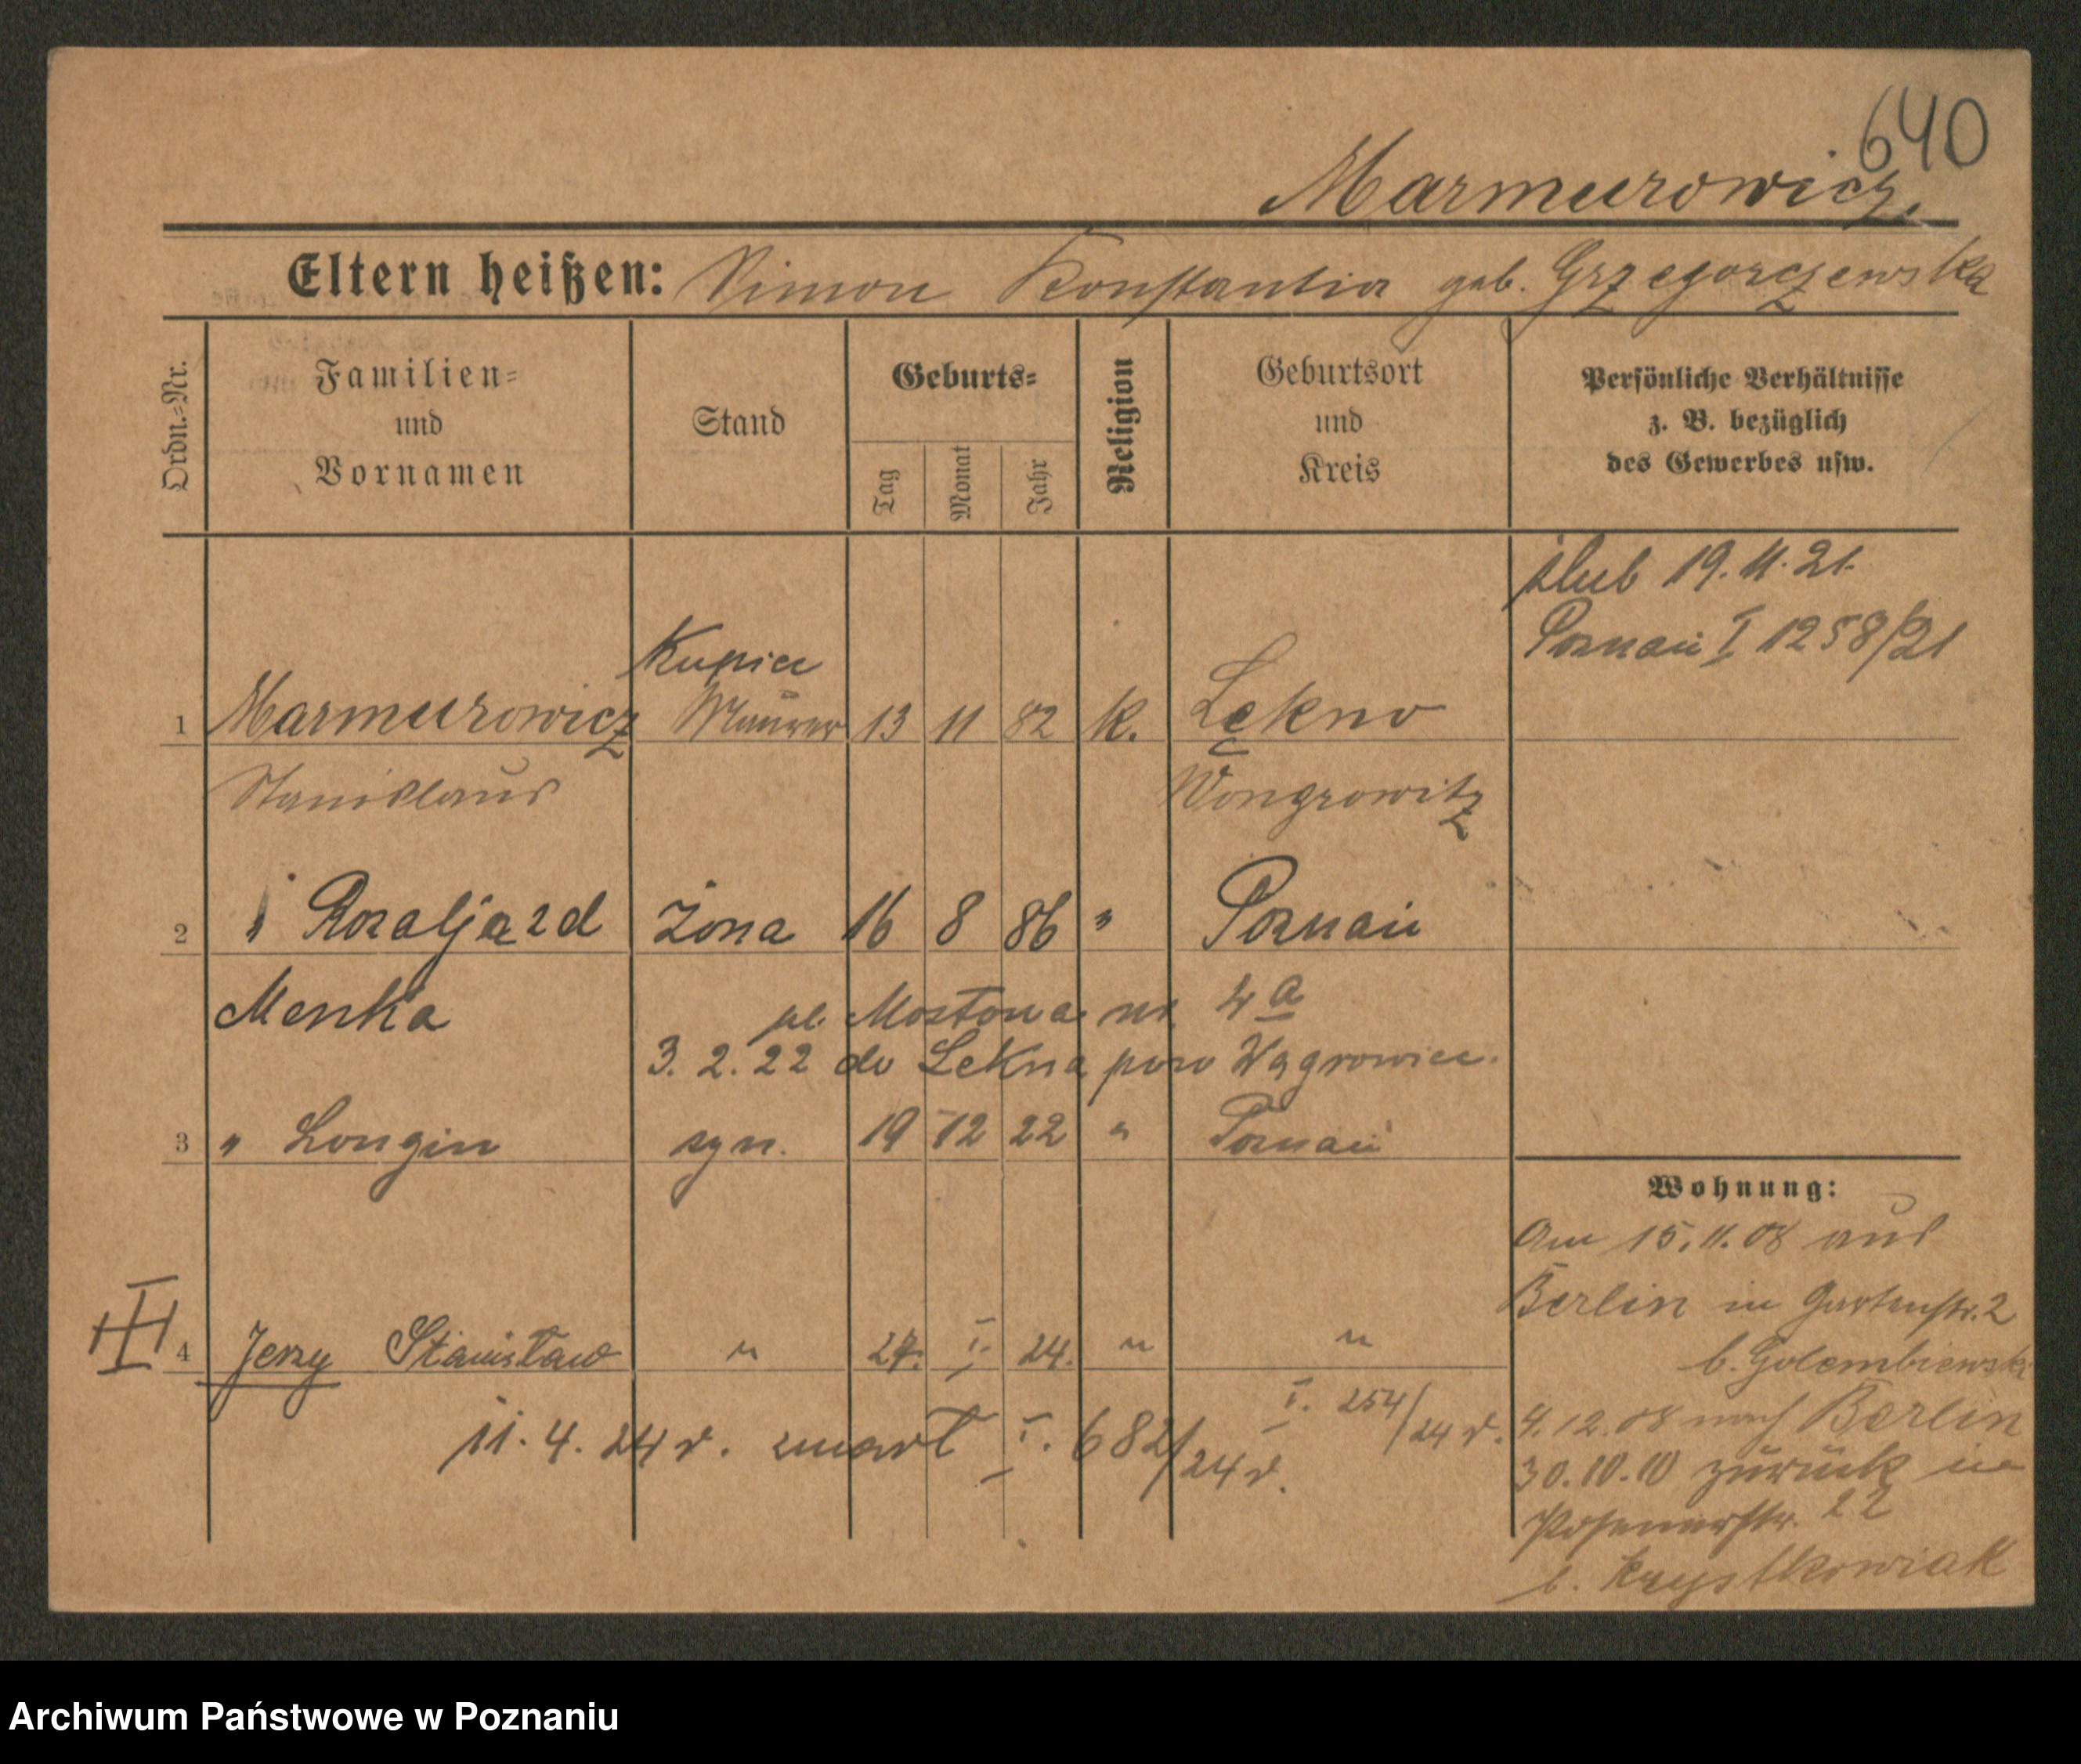 640
Marmurowicz.
Eltern heißen: Simon Konstantia geb. Grzegorczewska
Ordn.-Nr.
Familien-
und
Vornamen
Stand
Geburts-
Tag
Monat
Jahr
Religion
Geburtsort
und
Kreis
Persönliche Verhältnisse
z. B. bezüglich
des Gewerbes usw.
ślub 19. 11. 21.
Poznań I 1258/21
Kupiec
1 Marmurowicz Maurer 13 11 82 k. Lekno
Stanislaus Wongrowitz
2 " Rozalja z d Żona 16 8 86 " Poznań
Menka
pl. Mostowa nr. 4 a
3. 2. 22 do Lekna pow Wągrowiec.
3 " Longin syn. 19 12 22 " Poznań
4 Jerzy Stanisław " 27. I. 24. " "
I. 254/24 r.
11. 4. 24 r. zmarł I. 682/24 r.
Wohnung:
Am 15. 11. 08 aus
Berlin in Gartenstr. 2
b. Golembiewski
4. 12. 08 nach Berlin
30. 10. 10 zurück in
Posenerstr. 22
b. Krystkowiak
Archiwum Państwowe w Poznaniu